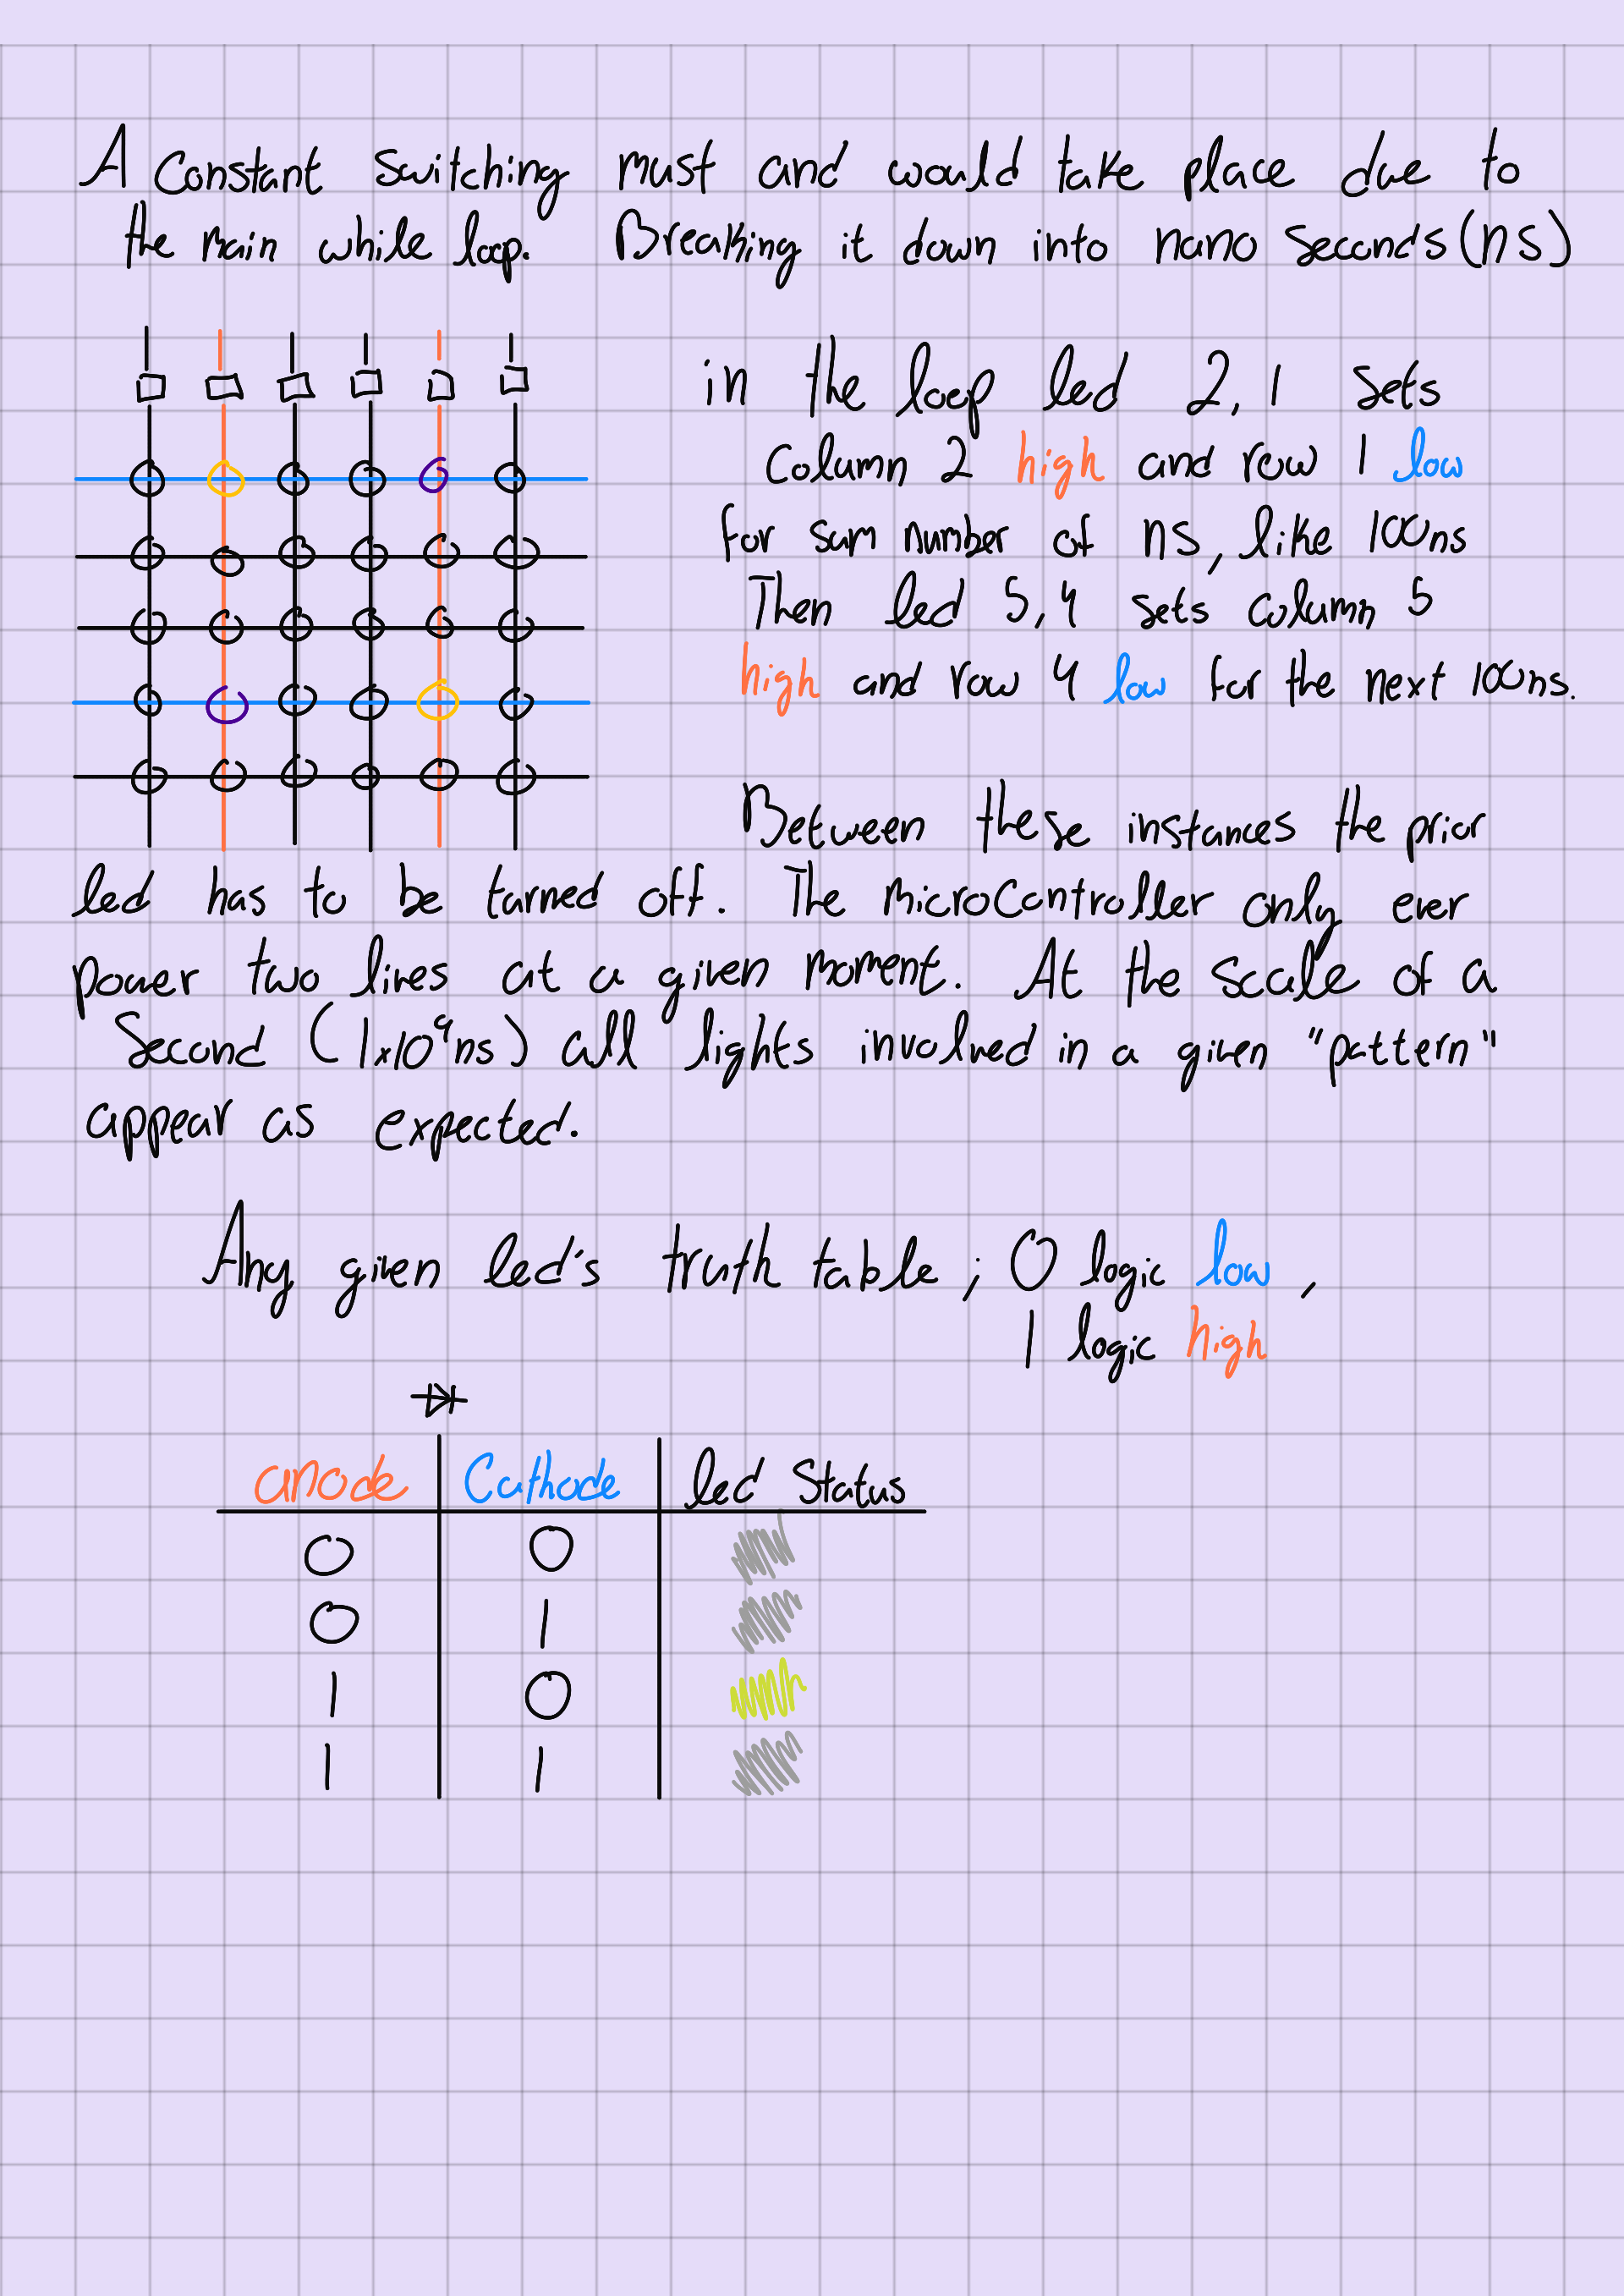 A Constant switching must and would take place due to
the main while loop. Breaking it down into nano seconds (ns)
in the loop led 2,1 sets
Column 2 high and row 1 low
for sum number of ns, like 100ns
Then led 5,4 sets column 5
high and row 4 low for the next 100ns.
Between these instances the prior
led has to be turned off. The microController only ever
power two lines at a given moment. At the scale of a
Second (1x10⁹ns) all lights involved in a given "pattern"
appear as expected.
Any given led's truth table ; 0 logic low ,
1 logic high
anode Cathode led Status
0 0
0 1
1 0
1 1